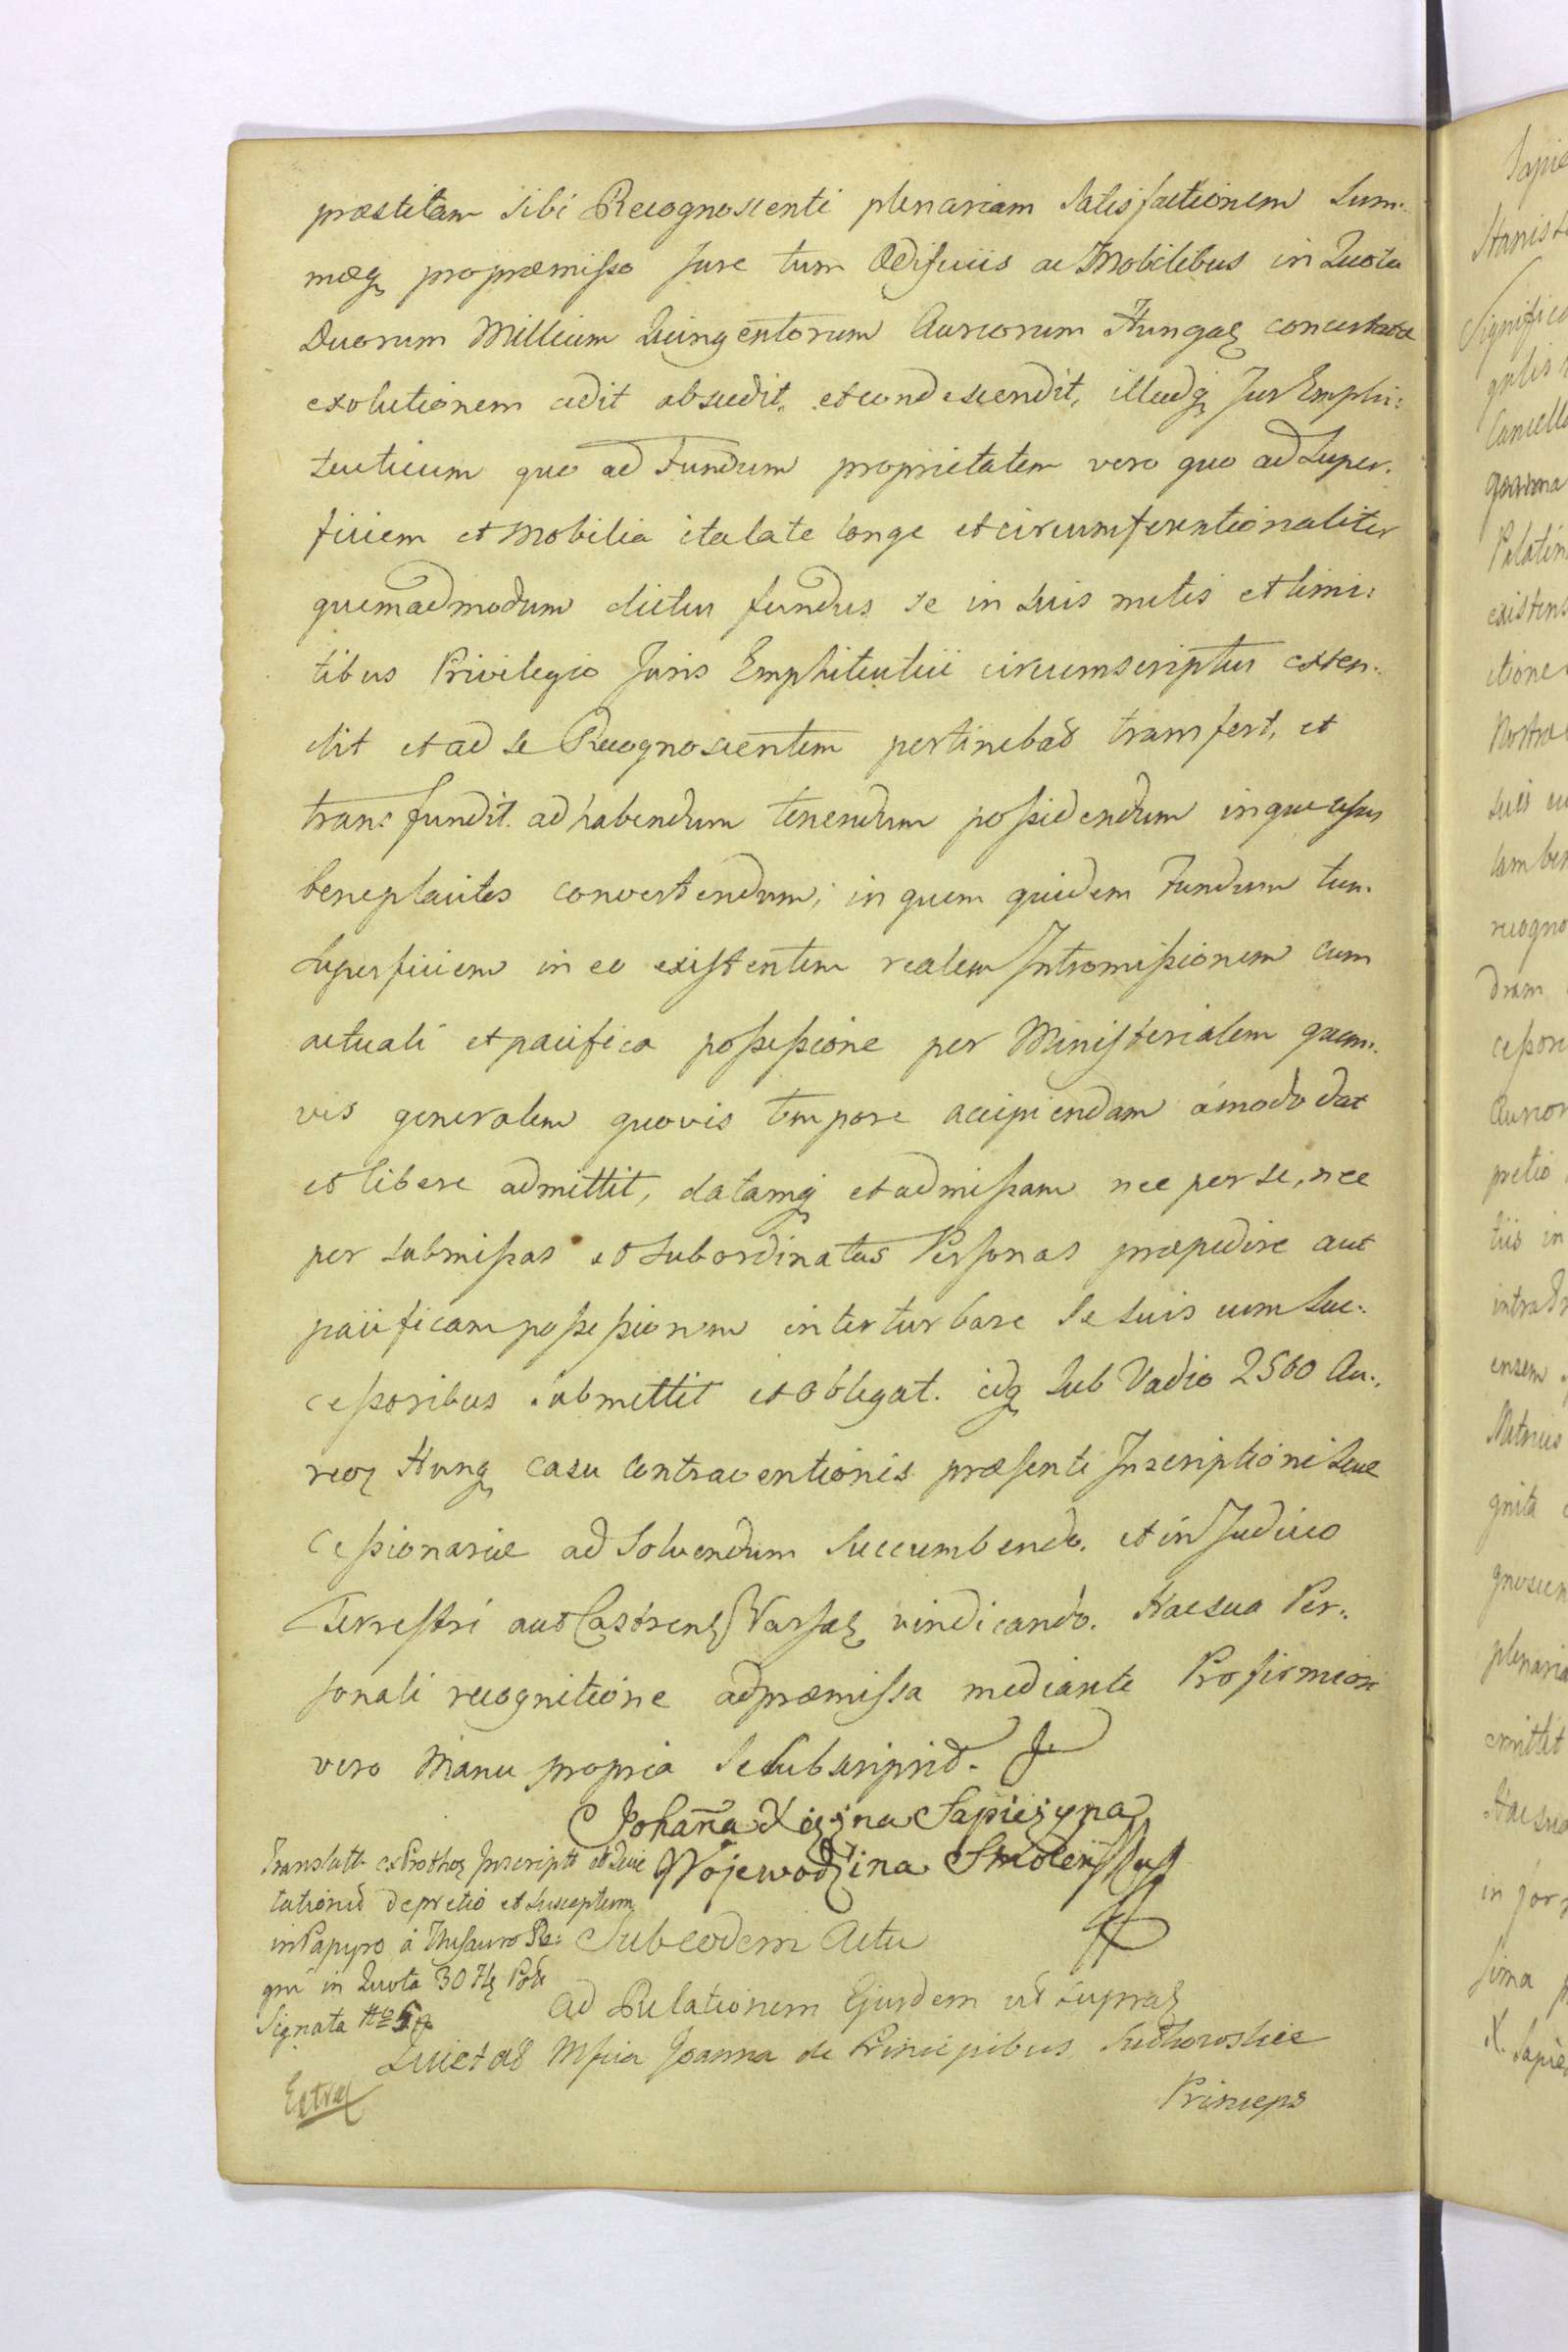 præstitam sibi Recognoscenti plenariam satisfactionem Sum:
mæq præmisso Jure tum Ædificiis ac Mobilibus in Quota
Duorum Millium Quingentorum Aureorum Hungaꝫ concertatæ
exolutionem cedit abscedit, et condescendit, illudq Jus Emphi:
teuticum quo ad Fundum proprietatem vero quo ad Super:
ficiem et Mobilia ita late longe et circumferentionaliter
quemadmodum dictus fundus se in suis metis et limi:
tibus Privilegio Juris Emphiteutici circumscriptus exten:
dit et ad se Recognoscentem pertinebat transfert, et
transfundit ad habendum tenendum possidendum inque usus
beneplacitos convertendum; in quem quidem Fundum tum
Superficiem in eo existentem realem Intromissionem cum
actuali et pacifica possessione per Ministerialem quem:
vis generalem quovis tempore accipiendam ámodo dat
et libere admittit, datamq et admissam nec per se, nec
per submissas et Subordinatas Personas præpedire aut
pacificam possessionem interturbare Se suis cum Suc:
cessoribus submittit et obligat. idq Sub Vadio 2500 Au:
reoꝝ Hung casu Contraventionis præsenti Inscriptioni Suæ
Cessionariæ ad Solvendum Succumbendo. et in Judicio
Terrestri aut Castrenꝫ Varsaꝫ vindicando. Hac sua Per:
sonali recognitione ad præmissa mediante Pro firmiori
vero Manu propria Se Subscripsit.
Johanna Xiężna Sapieżyna
Wojewodzina Smoleńska
Translatt ex Prothoꝫ Inscriptt et Quie
tationis de pretio et Susceptum
in Papyro á Thesauro Re:
gni in Quota 30 Flꝫ Polꝫ
Signata No 5
Sub eodem Actu
Ad Relationem Ejusdem ut supraꝫ
Quietat Mfica Joanna de Principibus Sułkowskie
Princeps
Extraꝫ
Sapie
Stanisla
Significa
Cancella
Palatin
existens
itione
Nostra
suis cu
recogno
cessori
Aureor
pretio
tiis in
ensem
gnita
gnoscen
plenaria
emittit
Hac sua
in for
X. Sapie